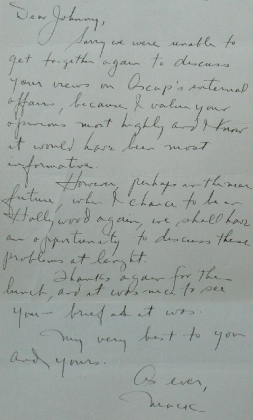 Dear Johnny,
Sorry we were unable to
get together again to discuss
your views on Ascap's internal
affairs, because I value your
opinions most highly and I know
it would have been most
informative.
However, perhaps in the near
future, when I chance to be in
Hollywood again, we shall have
an opportunity to discuss these
problems at lenght.
Thanks again for the
lunch, and it was nice to see
you - brief as it was.
My very best to you
and yours.
As ever,
Mack